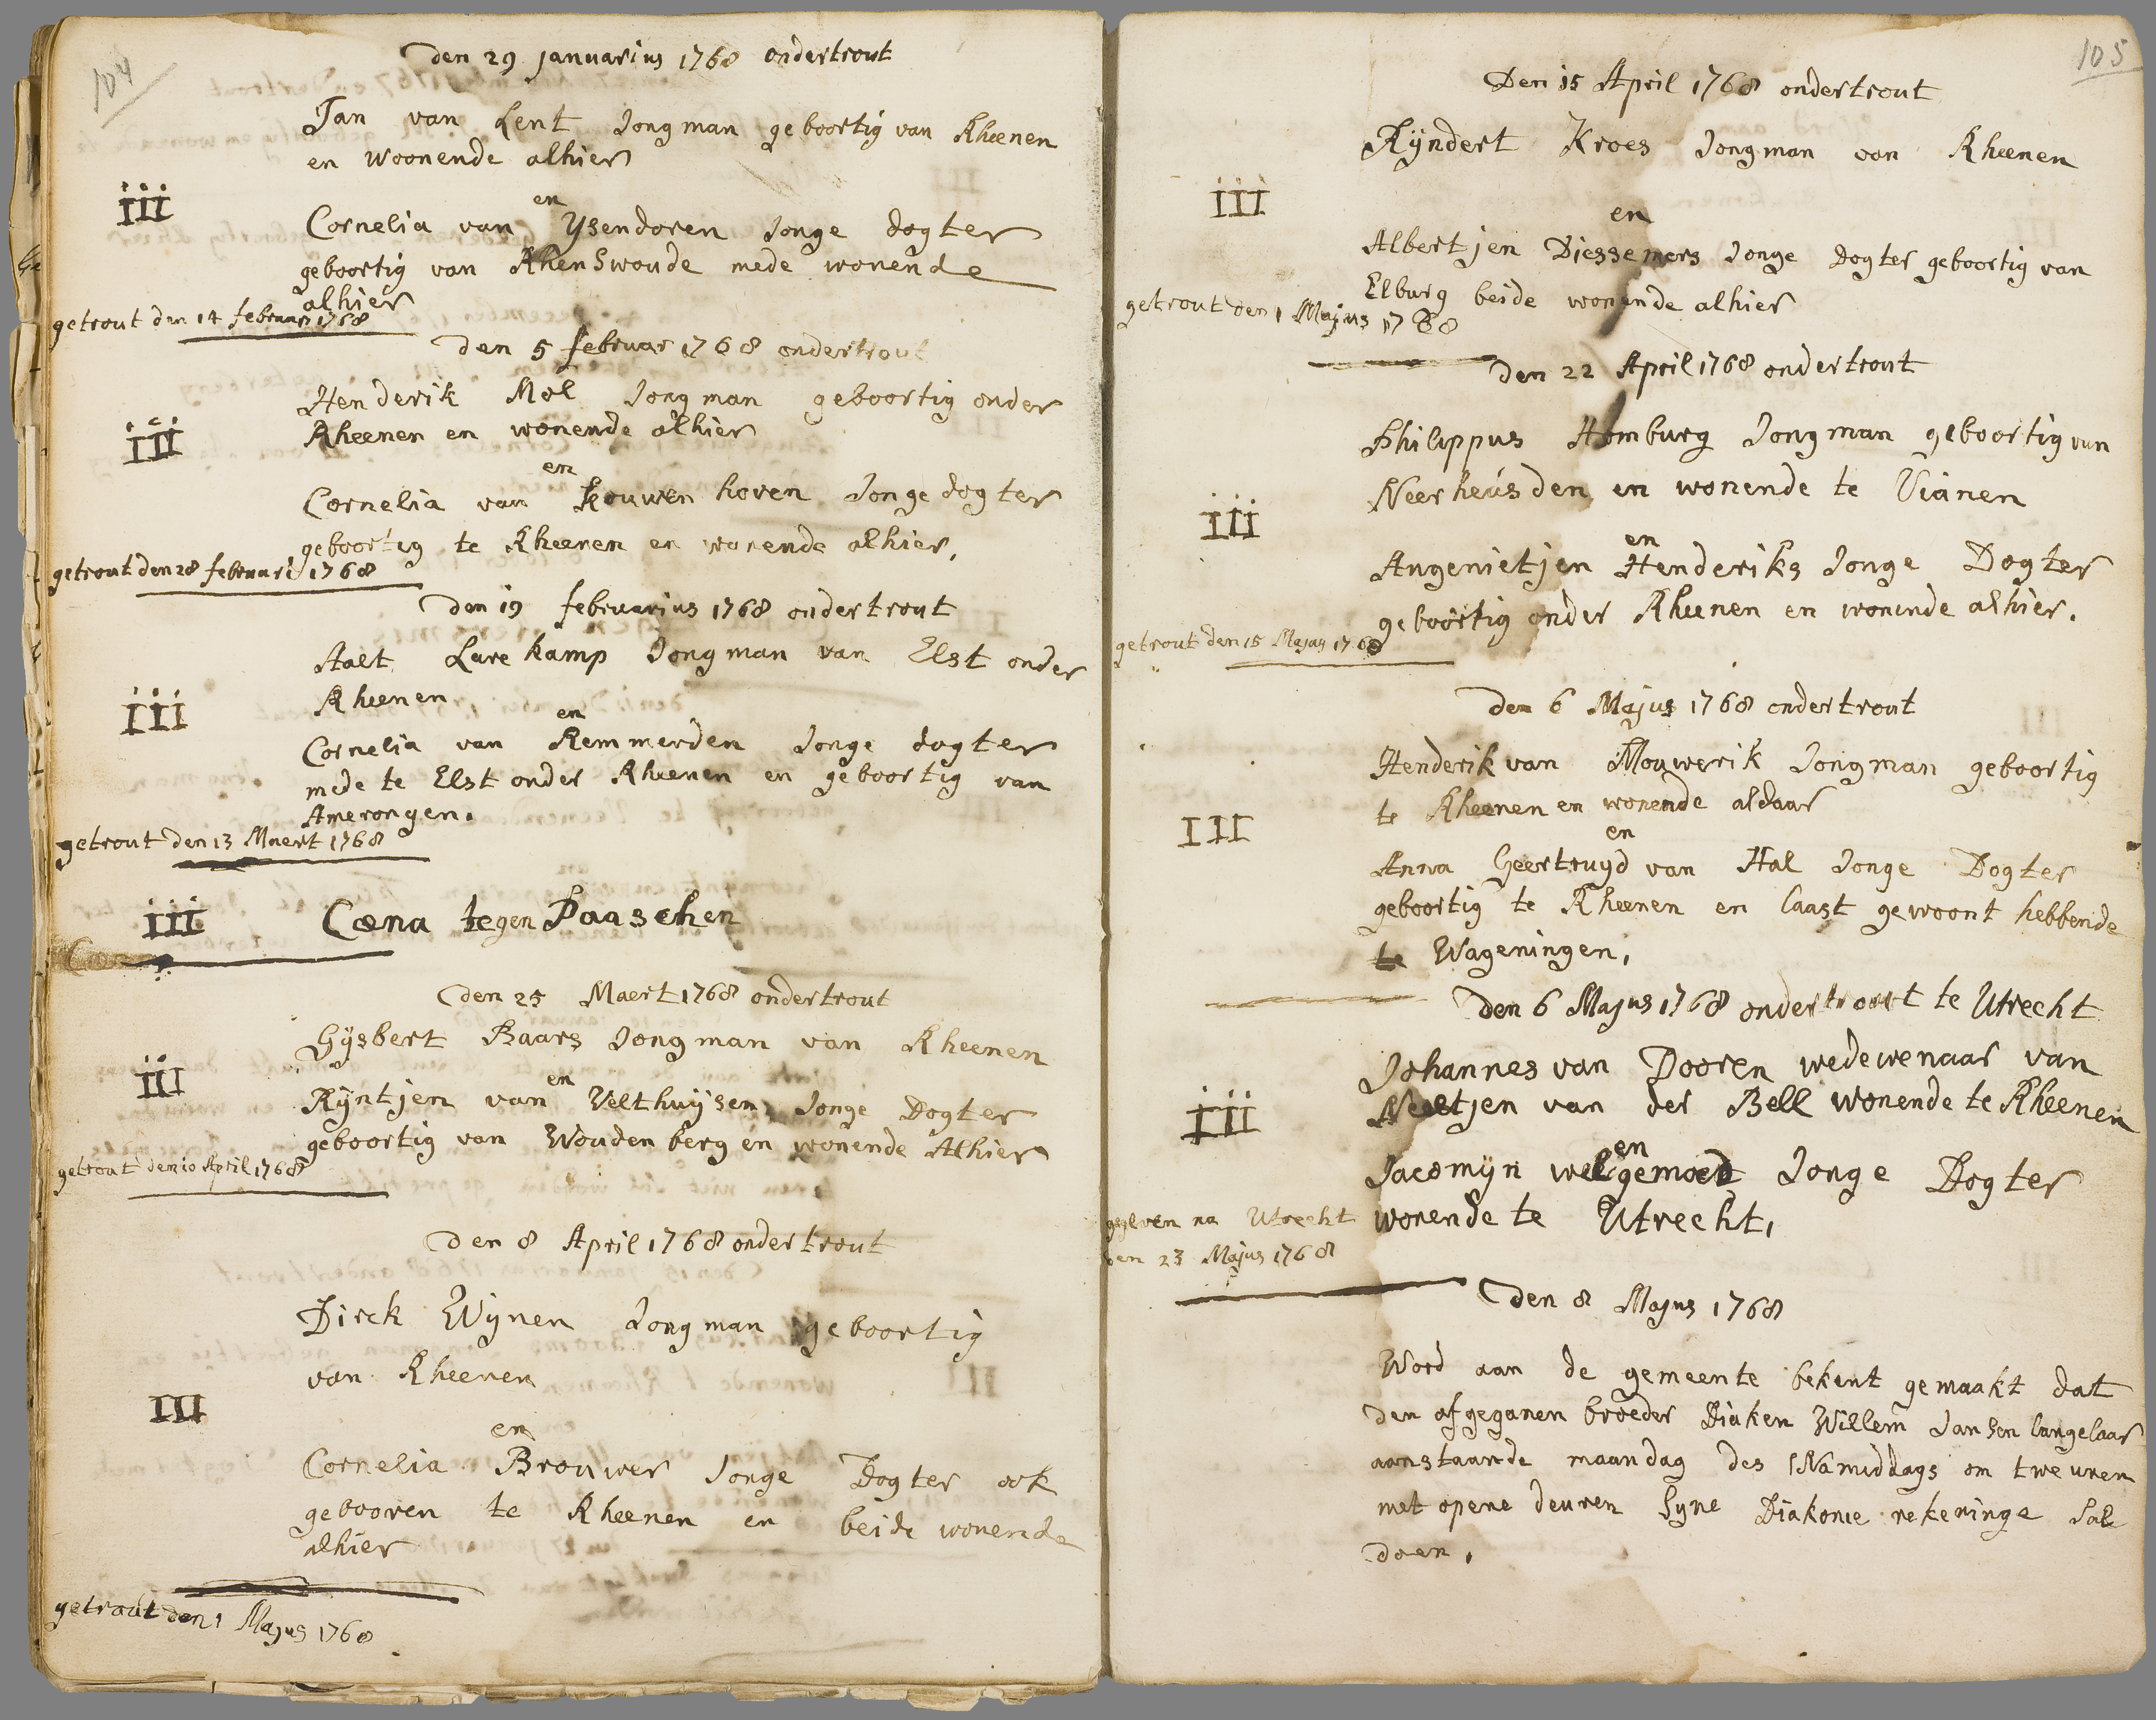 104
den 29 januarius 1768 ondertrout
Jan van Lent Jongman geboortig van Rheenen
en woonende alhier
en
iii
Cornelia van Ysendoren Jonge dogter
geboortig van Rhenswoude mede wonende
alhier
getrout den 14 februari 1768
den 5 februar 1768 ondertrout
Henderik Mol Jongman geboortig onder
Rheenen en wonende alhier
iii
en
Cornelia van Kouwenhoven Jonge dogter
geboortig te Rheenen en wonende alhier,
getrout den 28 februari 1768
den 19 februarius 1768 ondertrout
Aalt Lare kamp Jongman van Elst onder
Rheenen
iii
en
Cornelia van Remmerden Jonge dogter
mede te Elst onder Rheenen en geboortig van
Amerongen.
getrout den 13 Maert 1768
iii Cœna tegen Paaschen
den 25 Maert 1768 ondertrout
Gysbert Baars Jongman van Rheenen
iii
en
Ryntjen van Velthuysen Jonge Dogter
geboortig van Woudenberg en wonende Alhier
getrout den 10 April 1768
den 8 April 1768 ondertrout
Dirck Wynen Jongman geboortig
van Rheenen
III
en
Cornelia Brouwer Jonge Dogter ook
gebooren te Rheenen en beide wonende
alhier
getrout den 1 Majus 1768
105
Den 15 April 1768 ondertrout
Ryndert Kroes Jongman van Rheenen
iii
en
Albertjen Diessemers Jonge Dogter geboortig van
Elburg beide wonende alhier
getrout den 1 Majus 1768
den 22 April 1768 ondertrout
Philippus Homburg Jongman geboortig van
Neerheusden en wonende te Vianen
iii
en
Angenietjen Henderiks Jonge Dogter
geboortig onder Rheenen en wonende alhier.
getrout den 15 Majus 1768
den 6 Majus 1768 ondertrout
Henderik van Mouwerik Jongman geboortig
te Rheenen en wonende aldaar
III
en
Anna Geertruyd van Hal Jonge Dogter
geboortig te Rheenen en laast gewoont hebbende
te Wageningen,
den 6 Majus 1768 ondertrout te Utrecht
Johannes van Dooren wedewenaar van
Neeltjen van der Bell wonende te Rheenen
iii
en
Jacomyn welgemoed Jonge Dogter
wonende te Utrecht,
gegeven na Utrecht
den 23 Majus 1768
den 8 Majus 1768
Word aan de gemeente bekent gemaakt dat
den afgeganen broeder Diaken Willem Jansen langelaar
aanstaande maandag des Namiddags om twe uren
met opene deuren syne Diakonie rekeninge sal
doen,